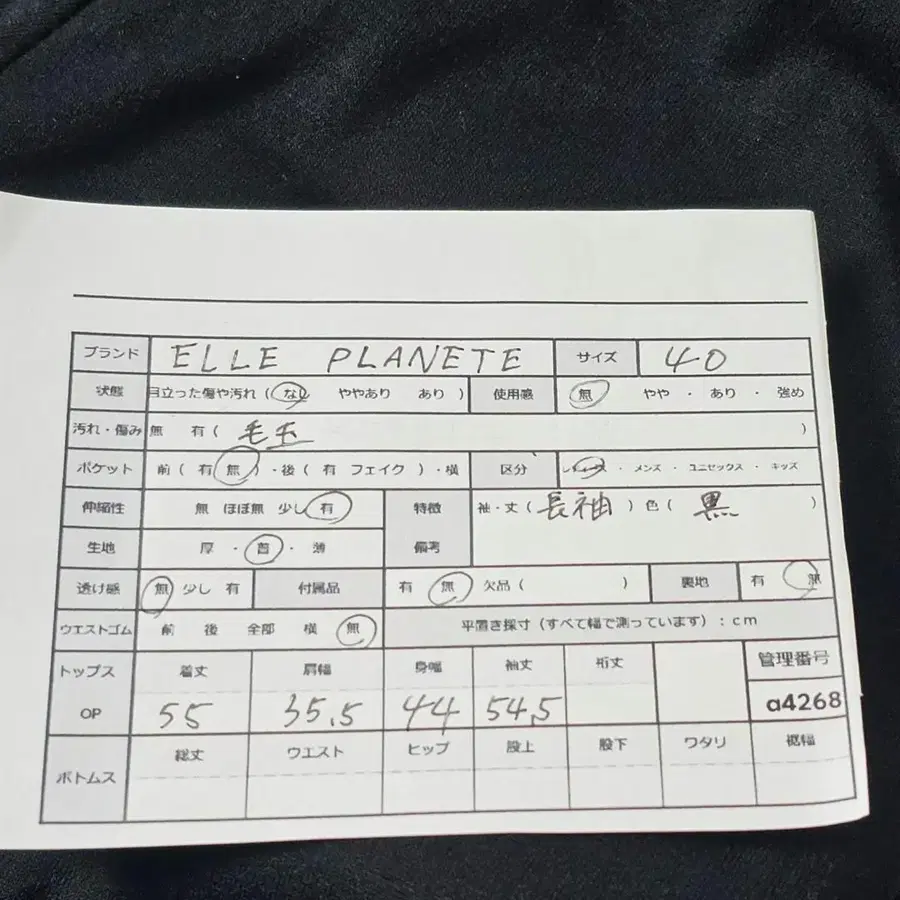 ブランド ELLE PLANETE サイズ 40
状態 目立った傷や汚れ ( なし ややあり あり ) 使用感 無 やや ・ あり ・ 強め
汚れ・傷み 無 有 ( 毛玉 )
ポケット 前 ( 有 無 ) ・後 ( 有 フェイク ) ・横 区分 ・ メンズ ・ ユニセックス ・ キッズ
伸縮性 無 ほぼ無 少し 有 特徴 袖・丈 ( 長袖 ) 色 ( 黒 )
生地 厚 ・ 普 ・ 薄 備考
透け感 無 少し 有 付属品 有 無 欠品 ( ) 裏地 有 無
ウエストゴム 前 後 全部 横 無 平置き採寸 (すべて幅で測っています) : cm
トップス 着丈 肩幅 身幅 袖丈 裄丈 管理番号
OP 55 35.5 44 54.5 a4268
ボトムス 総丈 ウエスト ヒップ 股上 股下 ワタリ 裾幅